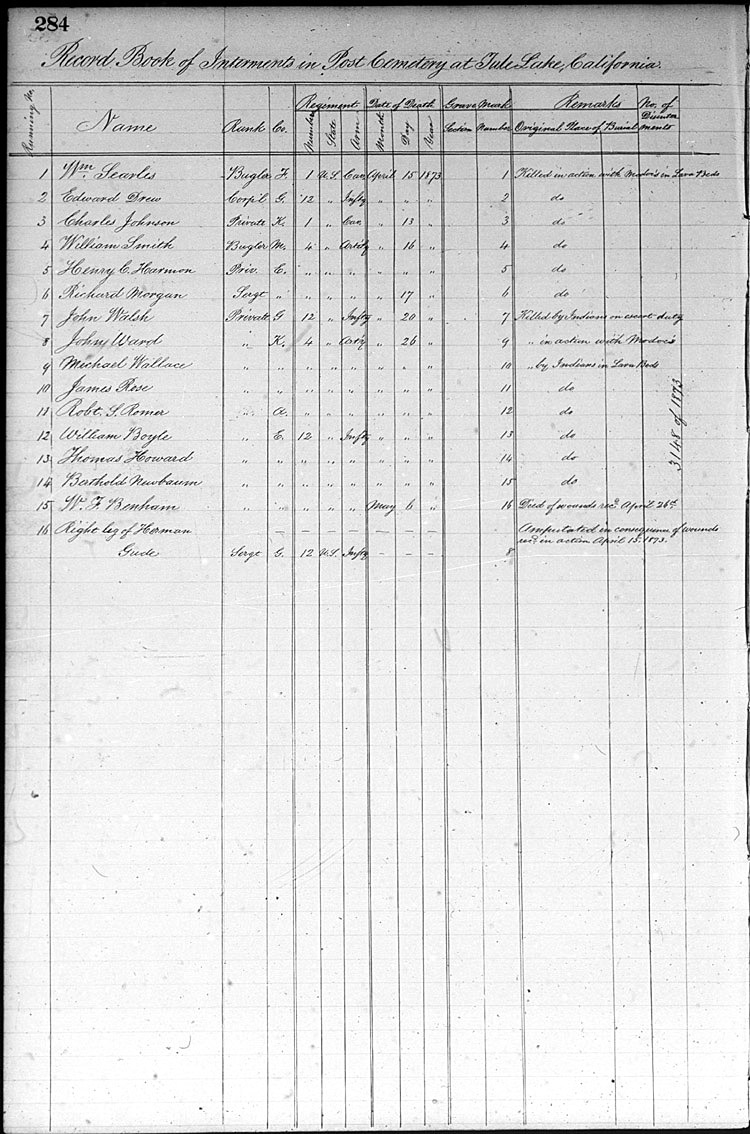 284
Record Book of Interments in Post Cemetery at Tule Lake, California.
Running No. Name Rank Co. Regiment Date of Death Grave Mark Remarks No. of Disinterments
Number State Arm Month Day Year Section Number Original Place of Burial
1 Wm Searles Bugler F. 1 U.S. Cav. April 15 1873 1 Killed in action with Modocs in Lava Beds
2 Edward Drew Corp'l G. 12 " Infty " " " 2 do
3 Charles Johnson Private K. 1 " Cav. " 13 " 3 do
4 William Smith Bugler M. 4 " Art'ty " 16 " 4 do
5 Henry C. Harmon Priv. E. " " " " " " 5 do
6 Richard Morgan Sergt " " " " " 17 " 6 do
7 John Walsh Private G 12 " Infty " 20 " 7 Killed by Indians on escort duty
8 John Ward " K. 4 " Arty " 26 " 9 " in action with Modocs
9 Michael Wallace " " " " " " " " 10 " by Indians in Lava Beds
10 James Rose " " " " " " " " 11 do
11 Robt. S. Romer " A. " " " " " " 12 do
12 William Boyle " E. 12 " Infty " " " 13 do
13 Thomas Howard " " " " " " " " 14 do
14 Berthold Newbaum " " " " " " " " 15 do
15 W. F. Benham " " " " " May 6 " 16 Died of wounds recd. April 26th.
16 Right leg of Herman — — — — — — — — Amputated in consequence of wounds
Gude Sergt G. 12 U.S. Infty — — — 8 recd. in action April 15. 1873.
3148 of 1873